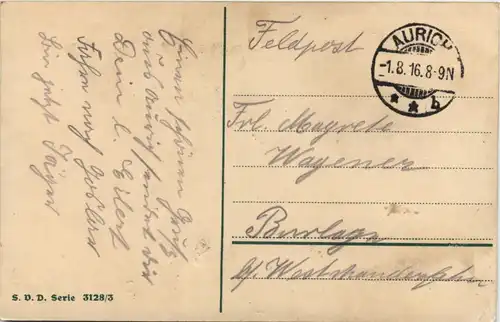 Einen schönen Gruß
aus Aurich sendet Dir
Dein l. Eilert
Fahren nach Goslar
bin jetzt Jäger
S. V. D. Serie 3128/3
Feldpost
AURICH
-1.8.16.8-9N
* * b
Frl Magrete
Wagener
Burlage
b/ Westrhauderfehn